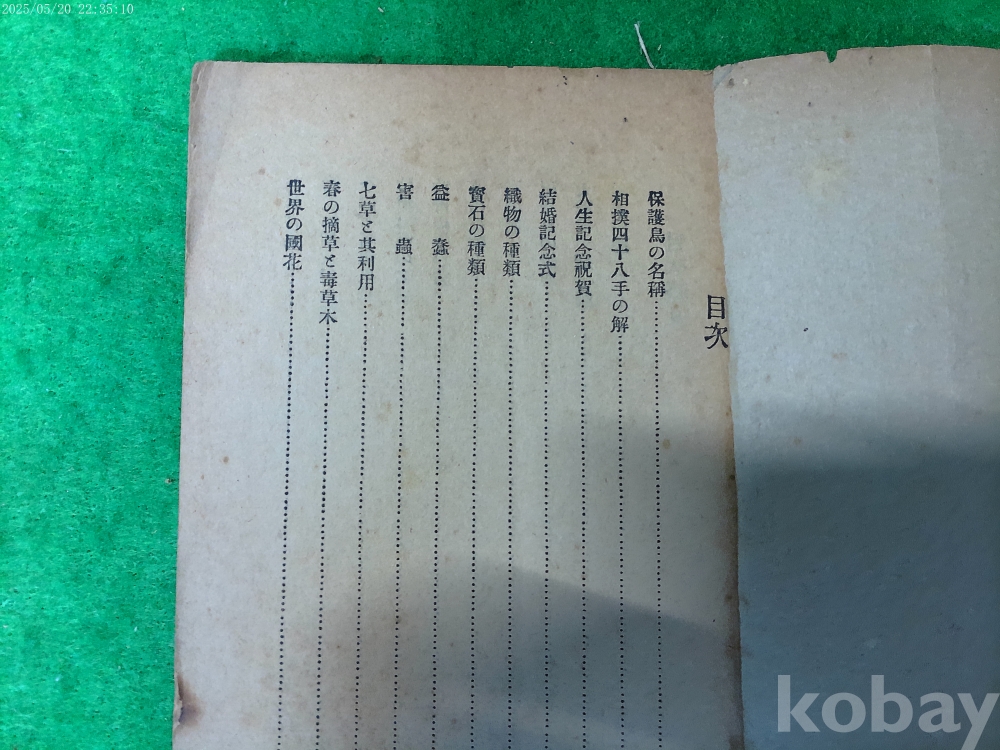 2025/05/20 22:35:10
目次
保護鳥の名稱
相撲四十八手の解
人生記念祝賀
結婚記念式
織物の種類
寳石の種類
益蟲
害蟲
七草と其利用
春の摘草と毒草木
世界の國花
kobay